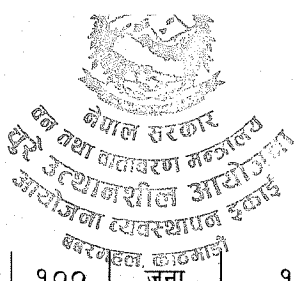 नेपाल सरकार
वन तथा वातावरण मन्त्रालय
चुरे उत्थानशील आयोजना
आयोजना व्यवस्थापन इकाई
बबरमहल, काठमाडौं
१०० जना १